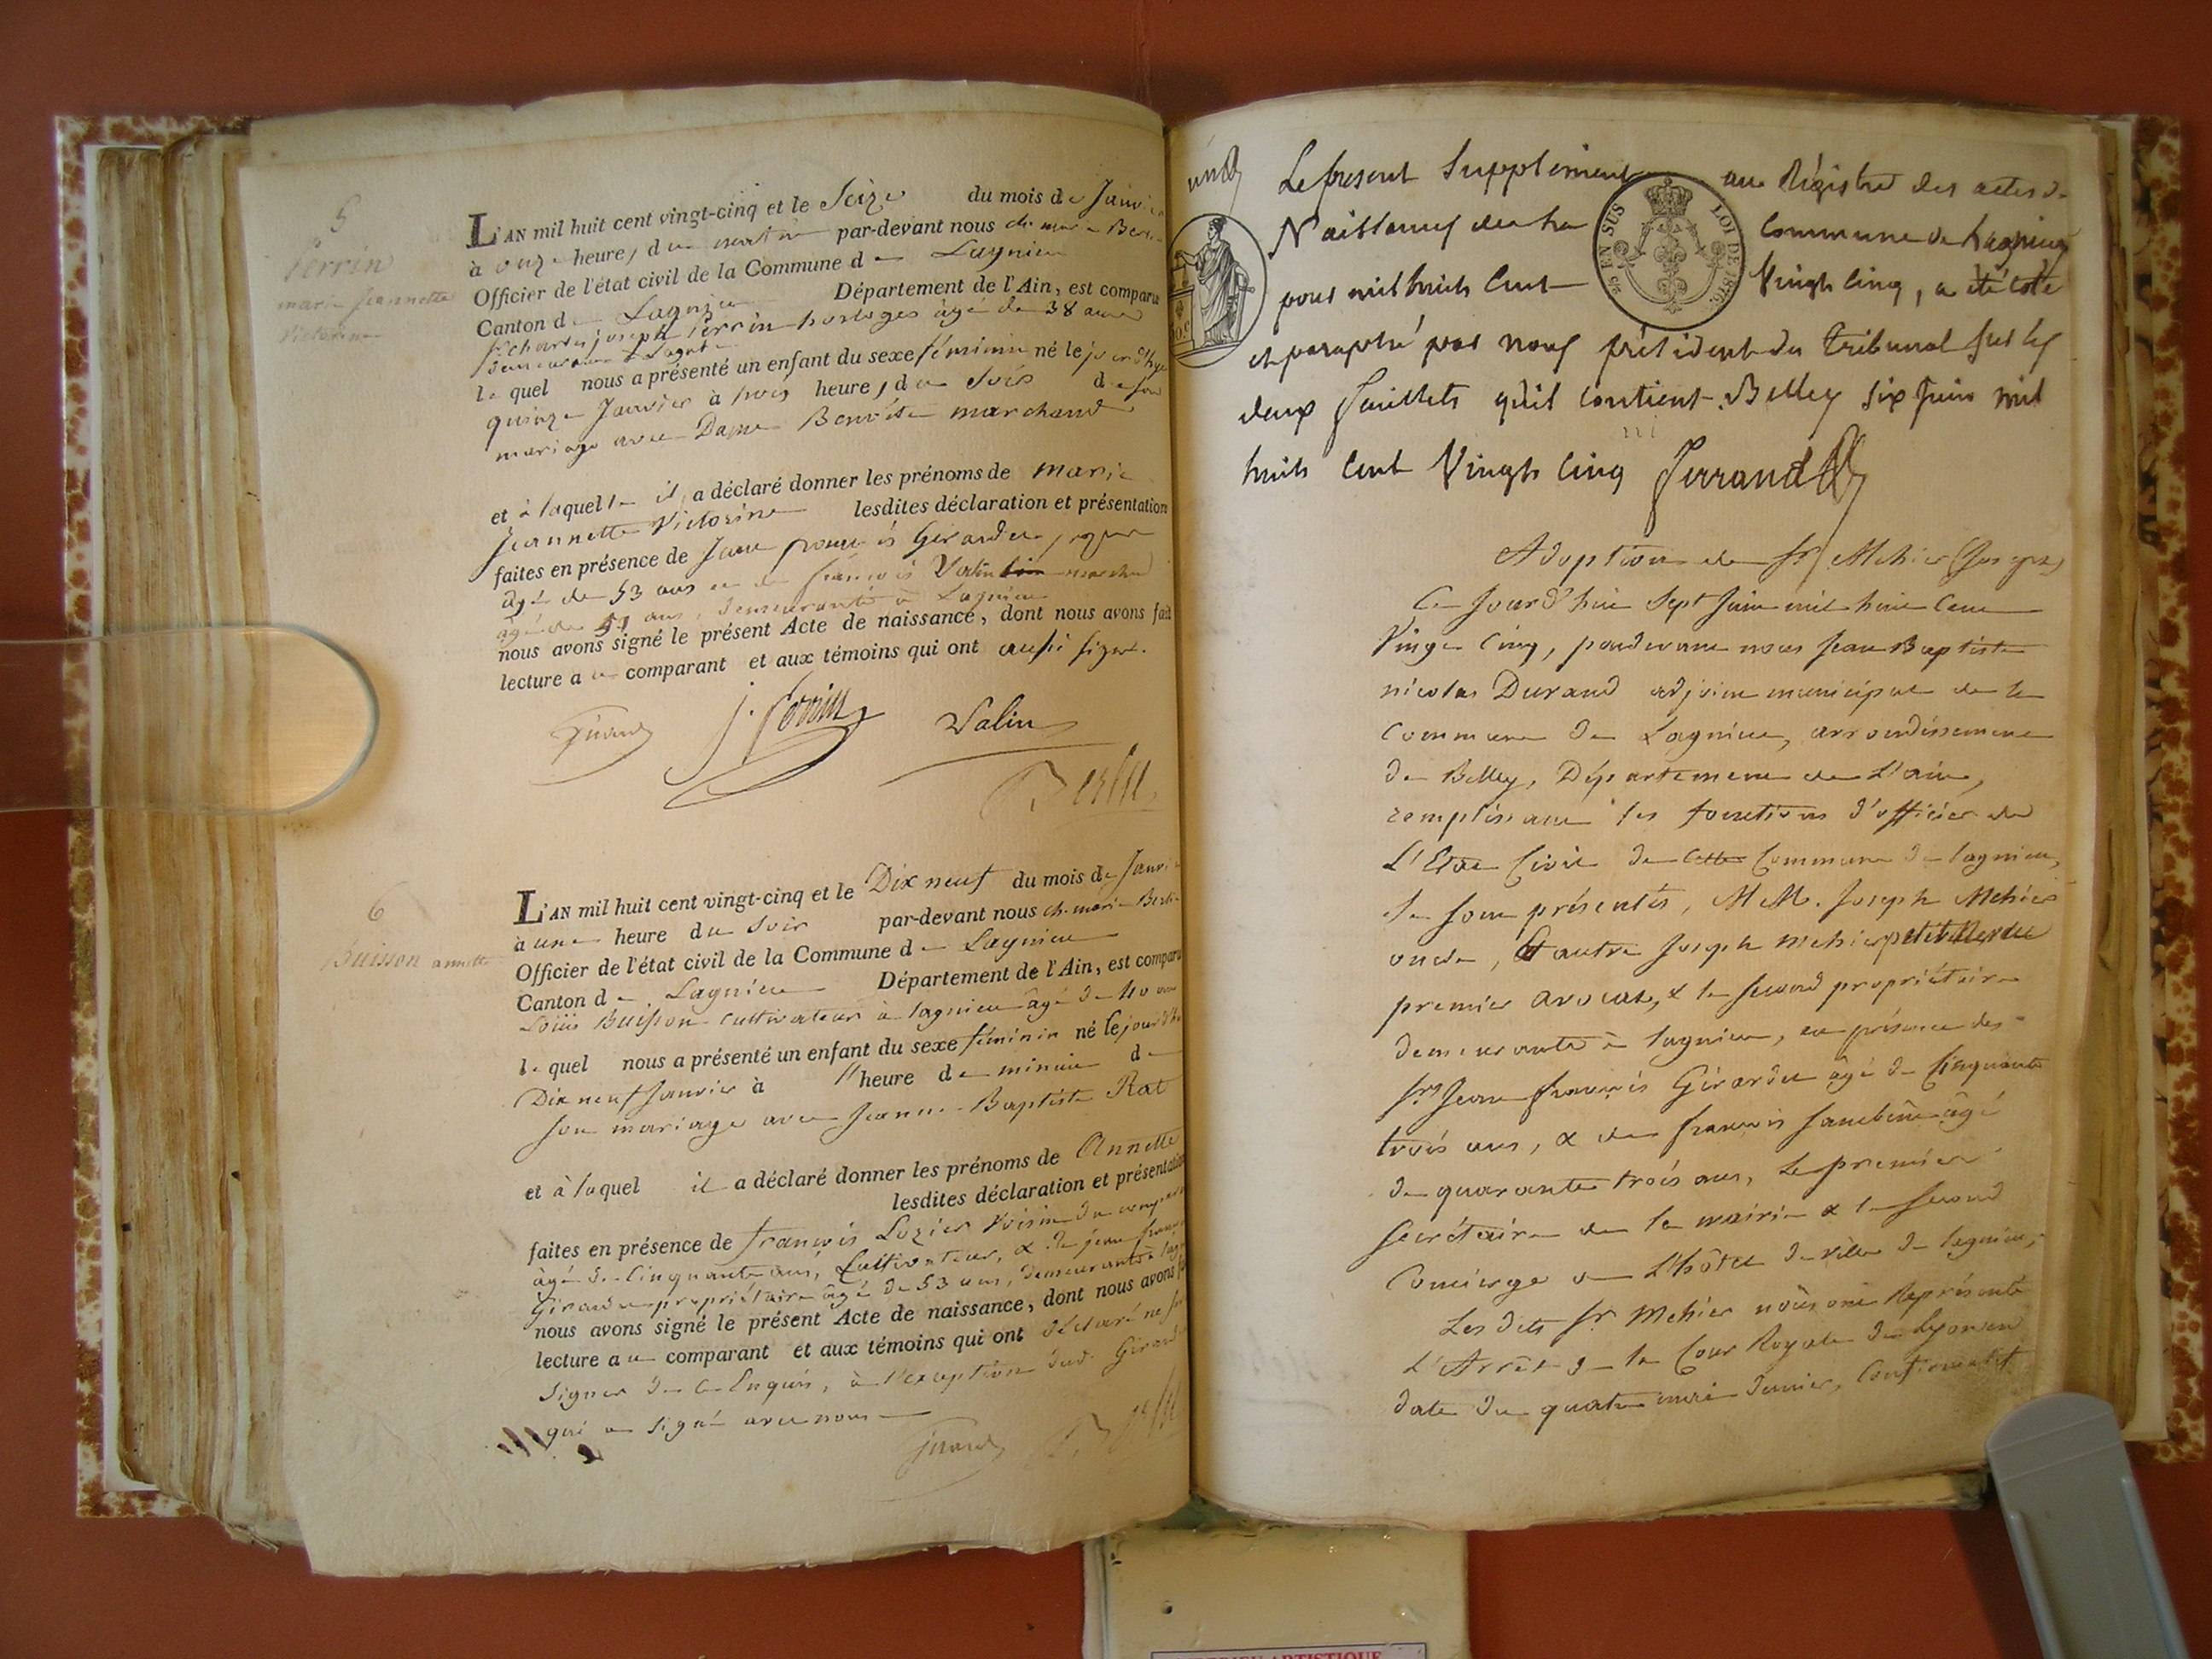 5
Perrin
marie Jeannette
Victorine
L'AN mil huit cent vingt-cinq et le Seize du mois de Janvier
à onze heures du matin par-devant nous ch. marie
Officier de l'état civil de la Commune de Lagnieu
Canton de Lagnieu Département de l'Ain, est comparu
Sr. Charles joseph Perrin horloger âgé de 38 ans
demeurant à Lagnieu
lequel nous a présenté un enfant du sexe féminin né le jour d'hyer
quinze Janvier à trois heures du Soir de son
mariage avec Dame Benoîte marchand
et à laquelle il a déclaré donner les prénoms de marie
Jeannette Victorine lesdites déclaration et présentation
faites en présence de Jean francois Girardu
âgé de 53 ans et de francois Valin marchand
âgé de ans, demeurants à Lagnieu
nous avons signé le présent Acte de naissance, dont nous avons fait
lecture au comparant et aux témoins qui ont aussi signé.
J. Perrin Valin
6
Buisson annette
L'AN mil huit cent vingt-cinq et le Dix neuf du mois de Janvier
à une heure du Soir par-devant nous ch. marie
Officier de l'état civil de la Commune de Lagnieu
Canton de Lagnieu Département de l'Ain, est comparu
Louis Buisson cultivateur à lagnieu âgé de 40 ans
lequel nous a présenté un enfant du sexe féminin né le jour d'hui
Dix neuf Janvier à l'heure de minuit de
son mariage avec Jeanne-Baptiste Rat
et à laquel il a déclaré donner les prénoms de Annette
lesdites déclaration et présentation
faites en présence de francois Lozier voisin du comparant
âgé de Cinquante ans, Cultivateur, & de jean francois
Girardu propriétaire âgé de 53 ans, demeurants à lagnieu
nous avons signé le présent Acte de naissance, dont nous avons fait
lecture au comparant et aux témoins qui ont déclaré ne savoir
Signer de ce Enquis, à l'exception dud. Girardu
qui a signé avec nous
Le présent Supplément au Régistre des actes de
Naissances de la Commune de Lagnieu
pour mil huit Cent Vingt cinq, a été coté
et paraphé par nous président du tribunal sur les
deux feuillets qu'il contient. Belley six Juin mil
huit Cent Vingt Cinq Ferrand
EN SUS LOI DE 1816.
Adoption de Sr. Mehier (Joseph)
Ce Jourd'hui Sept Juin mil huit Cent
Vingt Cinq, pardevant nous Jean Baptiste
nicolas Durand adjoint municipal de la
Commune de Lagnieu, arrondissement
de Belley, Département de L'ain,
remplissant les fonctions d'officier de
L'Etat Civil de cette Commune de lagnieu,
se sont présentés, M M. Joseph Mehier
oncle, Et autre Joseph mehier petit Neveu
premier avocat, & le second propriétaire
demeurants à lagnieu, en présence des
Srs Jean francois Girardu âgé de Cinquante
trois ans, & de francois âgé
de quarante trois ans, Le premier
Secrétaire de la mairie & le Second
Concierge de L'hôtel de ville de lagnieu,
Les dits Sr. Mehier nous ont Représenté
L'Arrêt de la Cour Royale de Lyon en
date du quatre mai dernier, Confirmatif